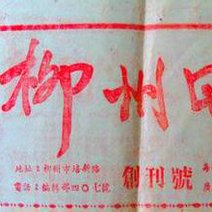 柳州日
創刊號
地址：柳州市培新路
電話：編輯部四〇七號